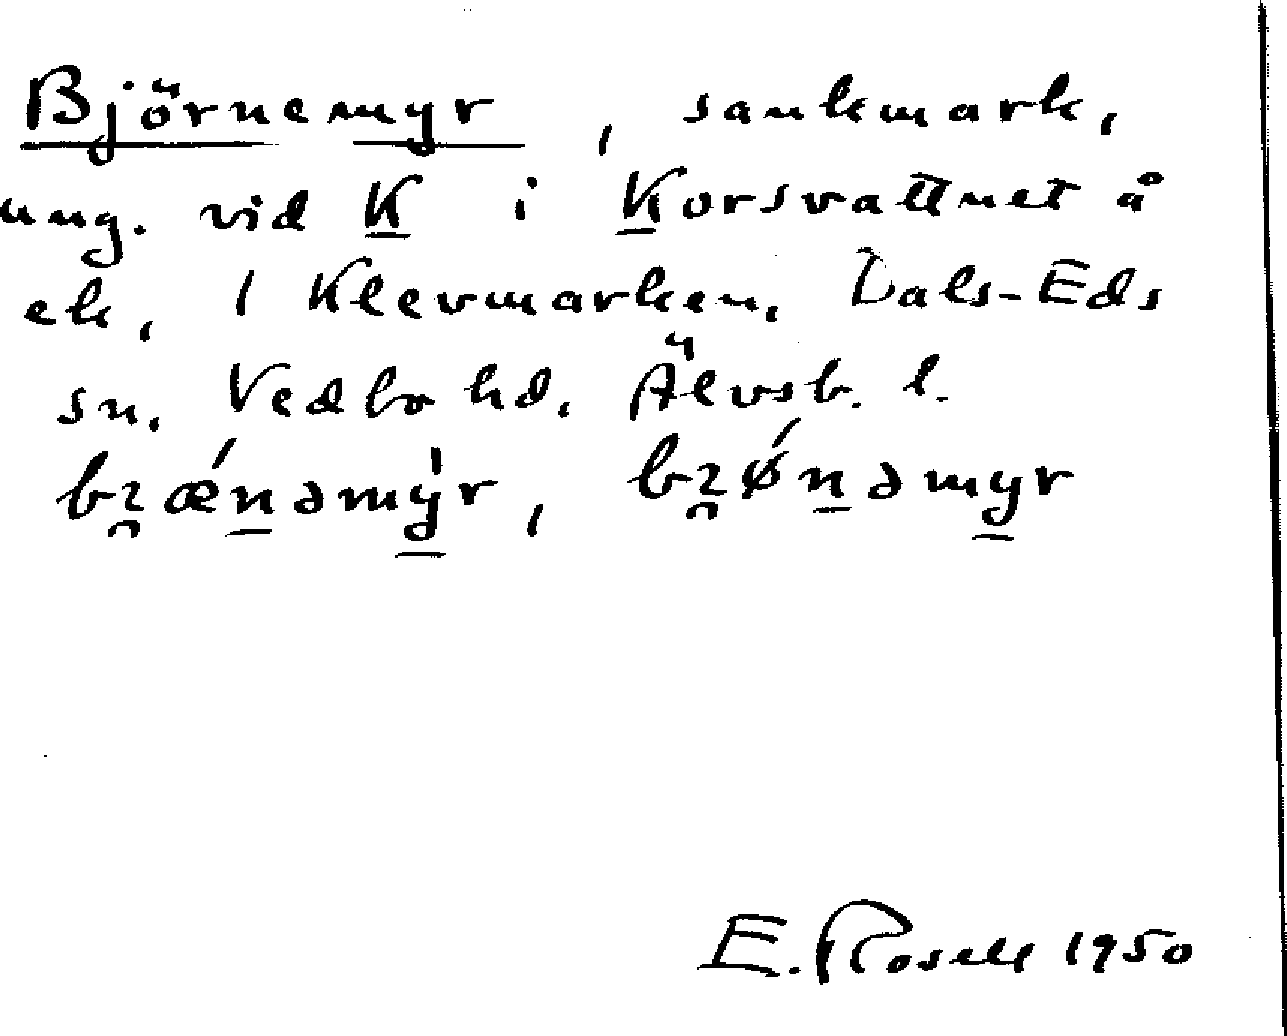 Björnemyr, sankmark,
ung. vid K i Korsvattnet å
ek, / Klevmarken, Dals-Eds
sn, Vedbo hd, Älvsb. l.
bɀ̯ǽn̲əmy̲̍r, bɀ̯ǿn̲əmy̲r
E. Rosell 1950